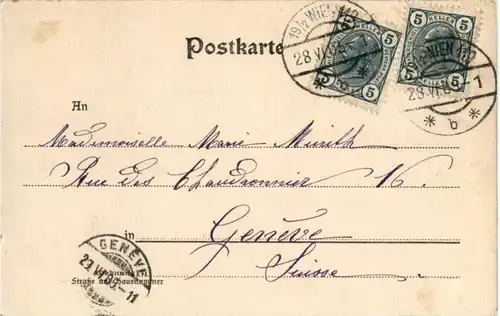 Postkarte
19/2 WIEN 112
28 VI 05
* b *
5 HELLER 5
5 5
5 HELLER 5
5 5
WIEN 112
28.VI.05 -1
* b *
An
Mademoiselle Marie Murith
Rue des Chaudronnier 16.
in Genève
Suisse
GENÈVE
29.VI.05.-11
Wohnung
Straße und Hausnummer